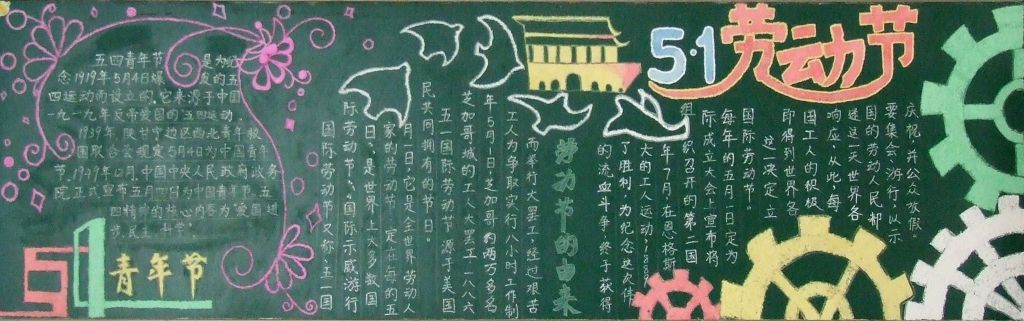 五四青年节 是为纪
念1919年5月4日爆发的五
四运动而设立的,它来源于中国
一九一九年反帝爱国的"五四运动,
1939年,陕甘宁边区西北青年救
国联合会规定5月4日为中国青年
节,1949年12月,中国中央人民政府政务
院正式宣布五月四日为中国青年节。五
四精神的核心内容为"爱国进
步,民主,科学"
54
青年节
5·1劳动节
劳动节的由来
国际劳动节又称五一国
际劳动节、国际示威游行
日,是世界上大多数国
家的劳动节。定在每年的五
月一日,它是全世界劳动人
民共同拥有的节日。
五一国际劳动节源于美国
芝加哥城的工人大罢工,一八八六
年5月1日,芝加哥的两万多名
工人为争取实行八小时工作制
而举行大罢工,经过艰苦
的流血斗争,终于获得
了胜利,为纪念这次伟
大的工人运动,1889
年7月,在恩格斯
组织召开的第二国
际成立大会上宣布将
每年的五月一日定为
这一决定立
即得到世界各
国工人的积极
响应,从此,每
逢这一天世界各
国的劳动人民都
要集会,游行,以示
庆祝,并公众放假。